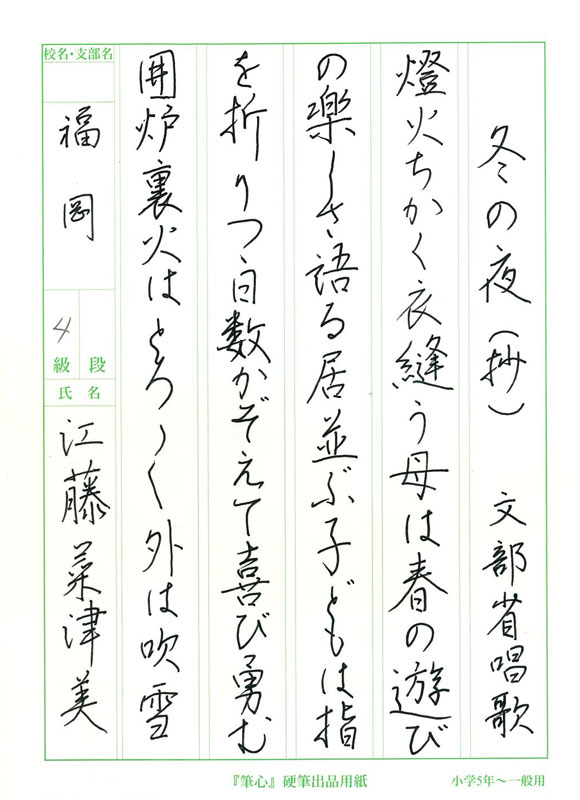 冬の夜(抄) 文部省唱歌
燈火ちかく衣縫う母は春の遊び
の楽しさ語る居並ぶ子どもは指
を折りつゝ日数かぞえて喜び勇む
囲炉裏火はとろ〱外は吹雪
校名・支部名
福岡
段
4級
氏名
江藤菜津美
『筆心』硬筆出品用紙
小学5年〜一般用